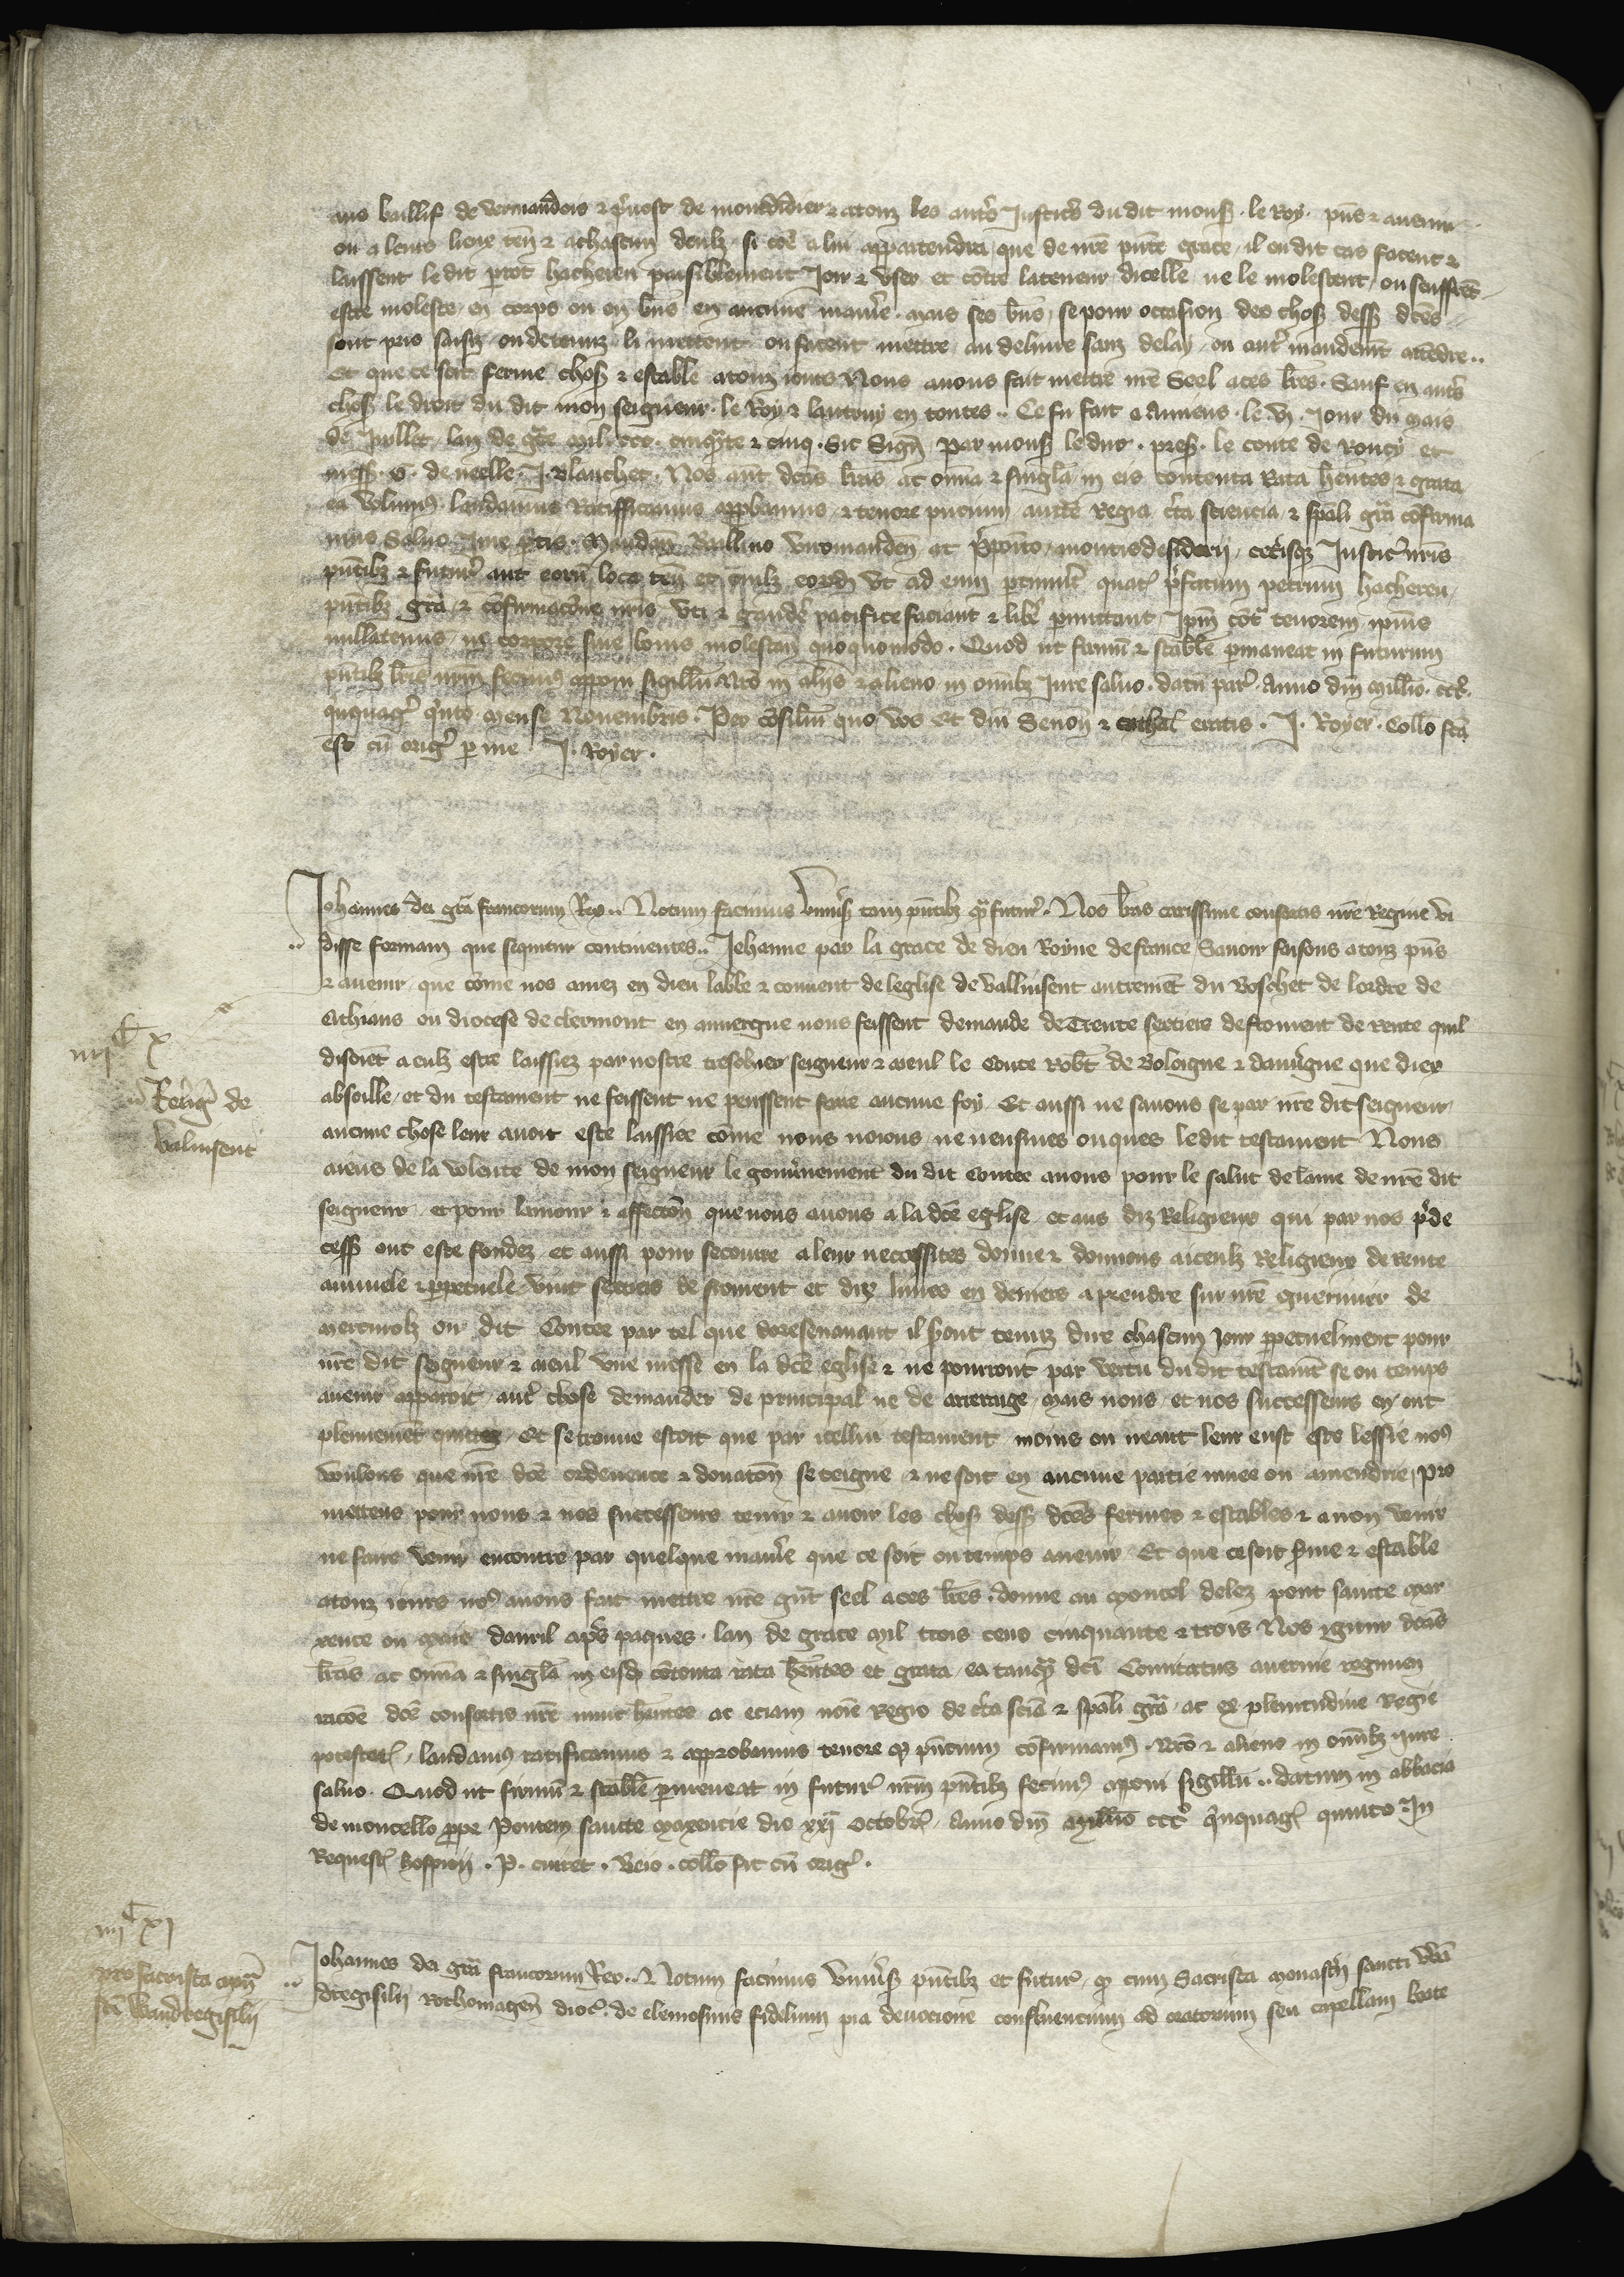 aus baillif de vermandois & p̾uost de montdidier & a touz les aut̾s Justic̾s du dit mons̾ . le Roy . pn̄s & auenir
ou a leurs lieux ten̄ & a chascun deulz si cōe a lui appartendra que de nr̄e pn̄te grace , il ou dit cas facent &
laissent le dit p̲rot hacheren paisiblement Joir & vser et cōtre la teneur dicelle ne le molestent ou seuffrēt
estre moleste en corps ou en biēs en aucune mani̾e . mais ses biēs , se pour occasion des chos̾ dess̾ dc̄es
sont pris saisiz ou detenuz li mettent ou facent mettre au deliure sanz delay , ou aut̾ mandemēt attēdre ..
Et que ce soit ferme chos̾ & estable a touz iours Nous auons fait mettre nr̄e Seel a ces lr̄es . Sauf en aut̾s
chos̾ le droit du dit mon seigneur . le Roy & lautruy en toutes .. Ce fu fait a Amiens . le vj . Jour du mois
de Juillet , lan de gr̄ce mil . ccc . cinqu̾nte & cinq . Sic Sign̄ Par mons̾ le duc . pres̾ . le conte de Roucy et
mess̾ . G . de neelle . J . Blanchet . Nos aut̄ dc̄as lr̄as ac om̄ia & sinḡla in eis contenta Rata hēntes & grata
ea volum⁹ . laudamus Ratifficamus app̲bamus , & tenore pn̄cium auct̄e Regia c̾ta sciencia & sp̄ali gr̄a cōfirma
mus Saluo Jure p̲tis . Mandam̄ Baillivo viromanden̄ ac p̾posito , montisdesiderij , cet̾isq̾ Justic̾ nr̄is
pn̄tibz & futur̾ aut eorū loca ten̄ et cuilz eordē vt ad eum p̲tinu̾it quat̾ p̾fatum petrum hacheren ,
pn̄tibz gr̄a & cōfirmacōne nr̄is vti & gaud̾e pacifice faciant & lib̾e p̲mittant , Ipm̄ cōt̾ tenorem ipi̾us
nullatenus , in corpore siue bonis molestan̄ quoquomodo . Quod ut firmū & stabile p̲maneat in futurum
pn̄tibz lr̄is nr̄m fecim⁹ apponi sigillū Nr̄o in alijs & alieno in omībz Jure saluo . datū par̾ . Anno dn̄i millīo . ccc̾ .
q̾nquag̾ q̾nto mense Nouembris . Per cōsiliū quo vos Et dn̄i Senon̄ & cathal̾ eratis . J . Royer . Collo fc̄a
est cū orig̾ p̲ me J . Royer .
Johannes dei gr̄a francorum Rex .. Notum facimus vniu̾s̾ tam pn̄tibz q̾ futur̾ . Nos lr̄as carissime consortis nr̄e Regine vi
disse formam que sequitur continentes .. Jehanne par la grace de dieu Royne de france Sauoir faisons a touz pn̄s
& auenir , que cōme nos amez en dieu labbe & couuent de leglise de valluisent autremēt du Boschet de lordre de
Cithiaus ou diocese de clermont en auuergne nous feissent demande de Trente sextiers de froment de rente quil
disoiēt a eulz estre laissiez par nostre treschier seigneur & aieul le Conte Robt̄ de Boloigne & dauu̾gne que diex
absoille , et du testament ne feissent ne peussent faire aucune foy . Et aussi ne sauons se par nr̄e dit seigneur
aucune chose leur auoit este laissiee cōme nous noions , ne ueusmes onques ledit testament Nous
aiens de la volente de mon seigneur le gouu̾nement du dit Contee auons pour le salut de lame de nr̄e dit
seigneur , et pour lamour & affectōn que nous auons a la dc̄e eglise , et aus diz Religieux qui par nos p̾de
cess̾ ont este fondez et aussi pour secourre a leur necessites donne & donnons a iceulz Religieux de rente
annuele & p̲petuele vint sextiers de froment et dix liures en deniers a prendre sur nr̄e guernier de
mercurolz ou dit Contee par tel que doresenauant il s̾ont tenuz dire chascun iour p̲petuelment pour
nr̄e dit seigneur & aieul vne messe en la dc̄e eglise & ne pourront par vertu du dit testamēt se ou temps
auenir apparoit , aut̾ chose demander de principal ne de arrerage , Mais nous , et nos successeurs en ont
plenniemēt quittez , Et se trouue estoit que par icellui testament moins ou neant leur eust este lessie no⁹
voulons que nr̄e dc̄e ordenence & donatōn se teigne , & ne soit en aucune partie muee ou amendrie , Pro
mettens pour nous & nos successeurs tenir & auoir les chos̾ dess̾ dc̄es fermes & estables & a non venir
ne faire venir encontre par quelque mani̾e que ce soit ou temps auenir . Et que ce soit f̾me & estable
a touz iours no⁹ auons fait mettre nr̄e gn̄t seel a ces lr̄es . donne au moncel delez pont sainte mar
xence ou mois dauril ap̾s paques . lan de grace mil trois cens cinquante & trois Nos igitur dc̄as
lr̄as ac om̄ia & sinḡla in eisdē cōtenta rata hēntes et grata , ea tanq̾ dc̄i Comitatus auernie regimen
racōe dc̄e consortis nr̄e nunc hēntes ac eciam noīe Regio de c̾ta sciā & sp̄ali gr̄a , ac ex plenitudine Regie
potestat̾ , laudam⁹ ratificamus & approbamus tenore q̾ pn̄cium cōfirmam⁹ . Nr̄o & alieno in omībz iure
saluo . Quod ut firmū & stabile p̲meneat in futur̾ nr̄m pn̄tibz fecim⁹ apponi sigillū .. datum in abbacia
de moncello p̲pe Pontem sancte maxencie die xxj̄ octobr̾ . Anno dn̄i millīo ccc̾ q̾nquag̾ quinto . In
Request̾ hospicij . P . cuiret . Beio . collo fit cū orig̾ .
iiij C x
Relig̾ de
valuisent
iiij C xj
pro sacrista mon̄
sc̄i Wandregisilij
Johannes dei gr̄a francorum Rex .. Notum facimus vniu̾s̾ pn̄tibz et futur̾ , q̾ cum Sacrista monast̾ij sancti Wan̄
dregisilij Rothomagen̄ dioc̾ . de elemosinis fidelium pia deuocione confluencium ad oratorium seu capellam beate